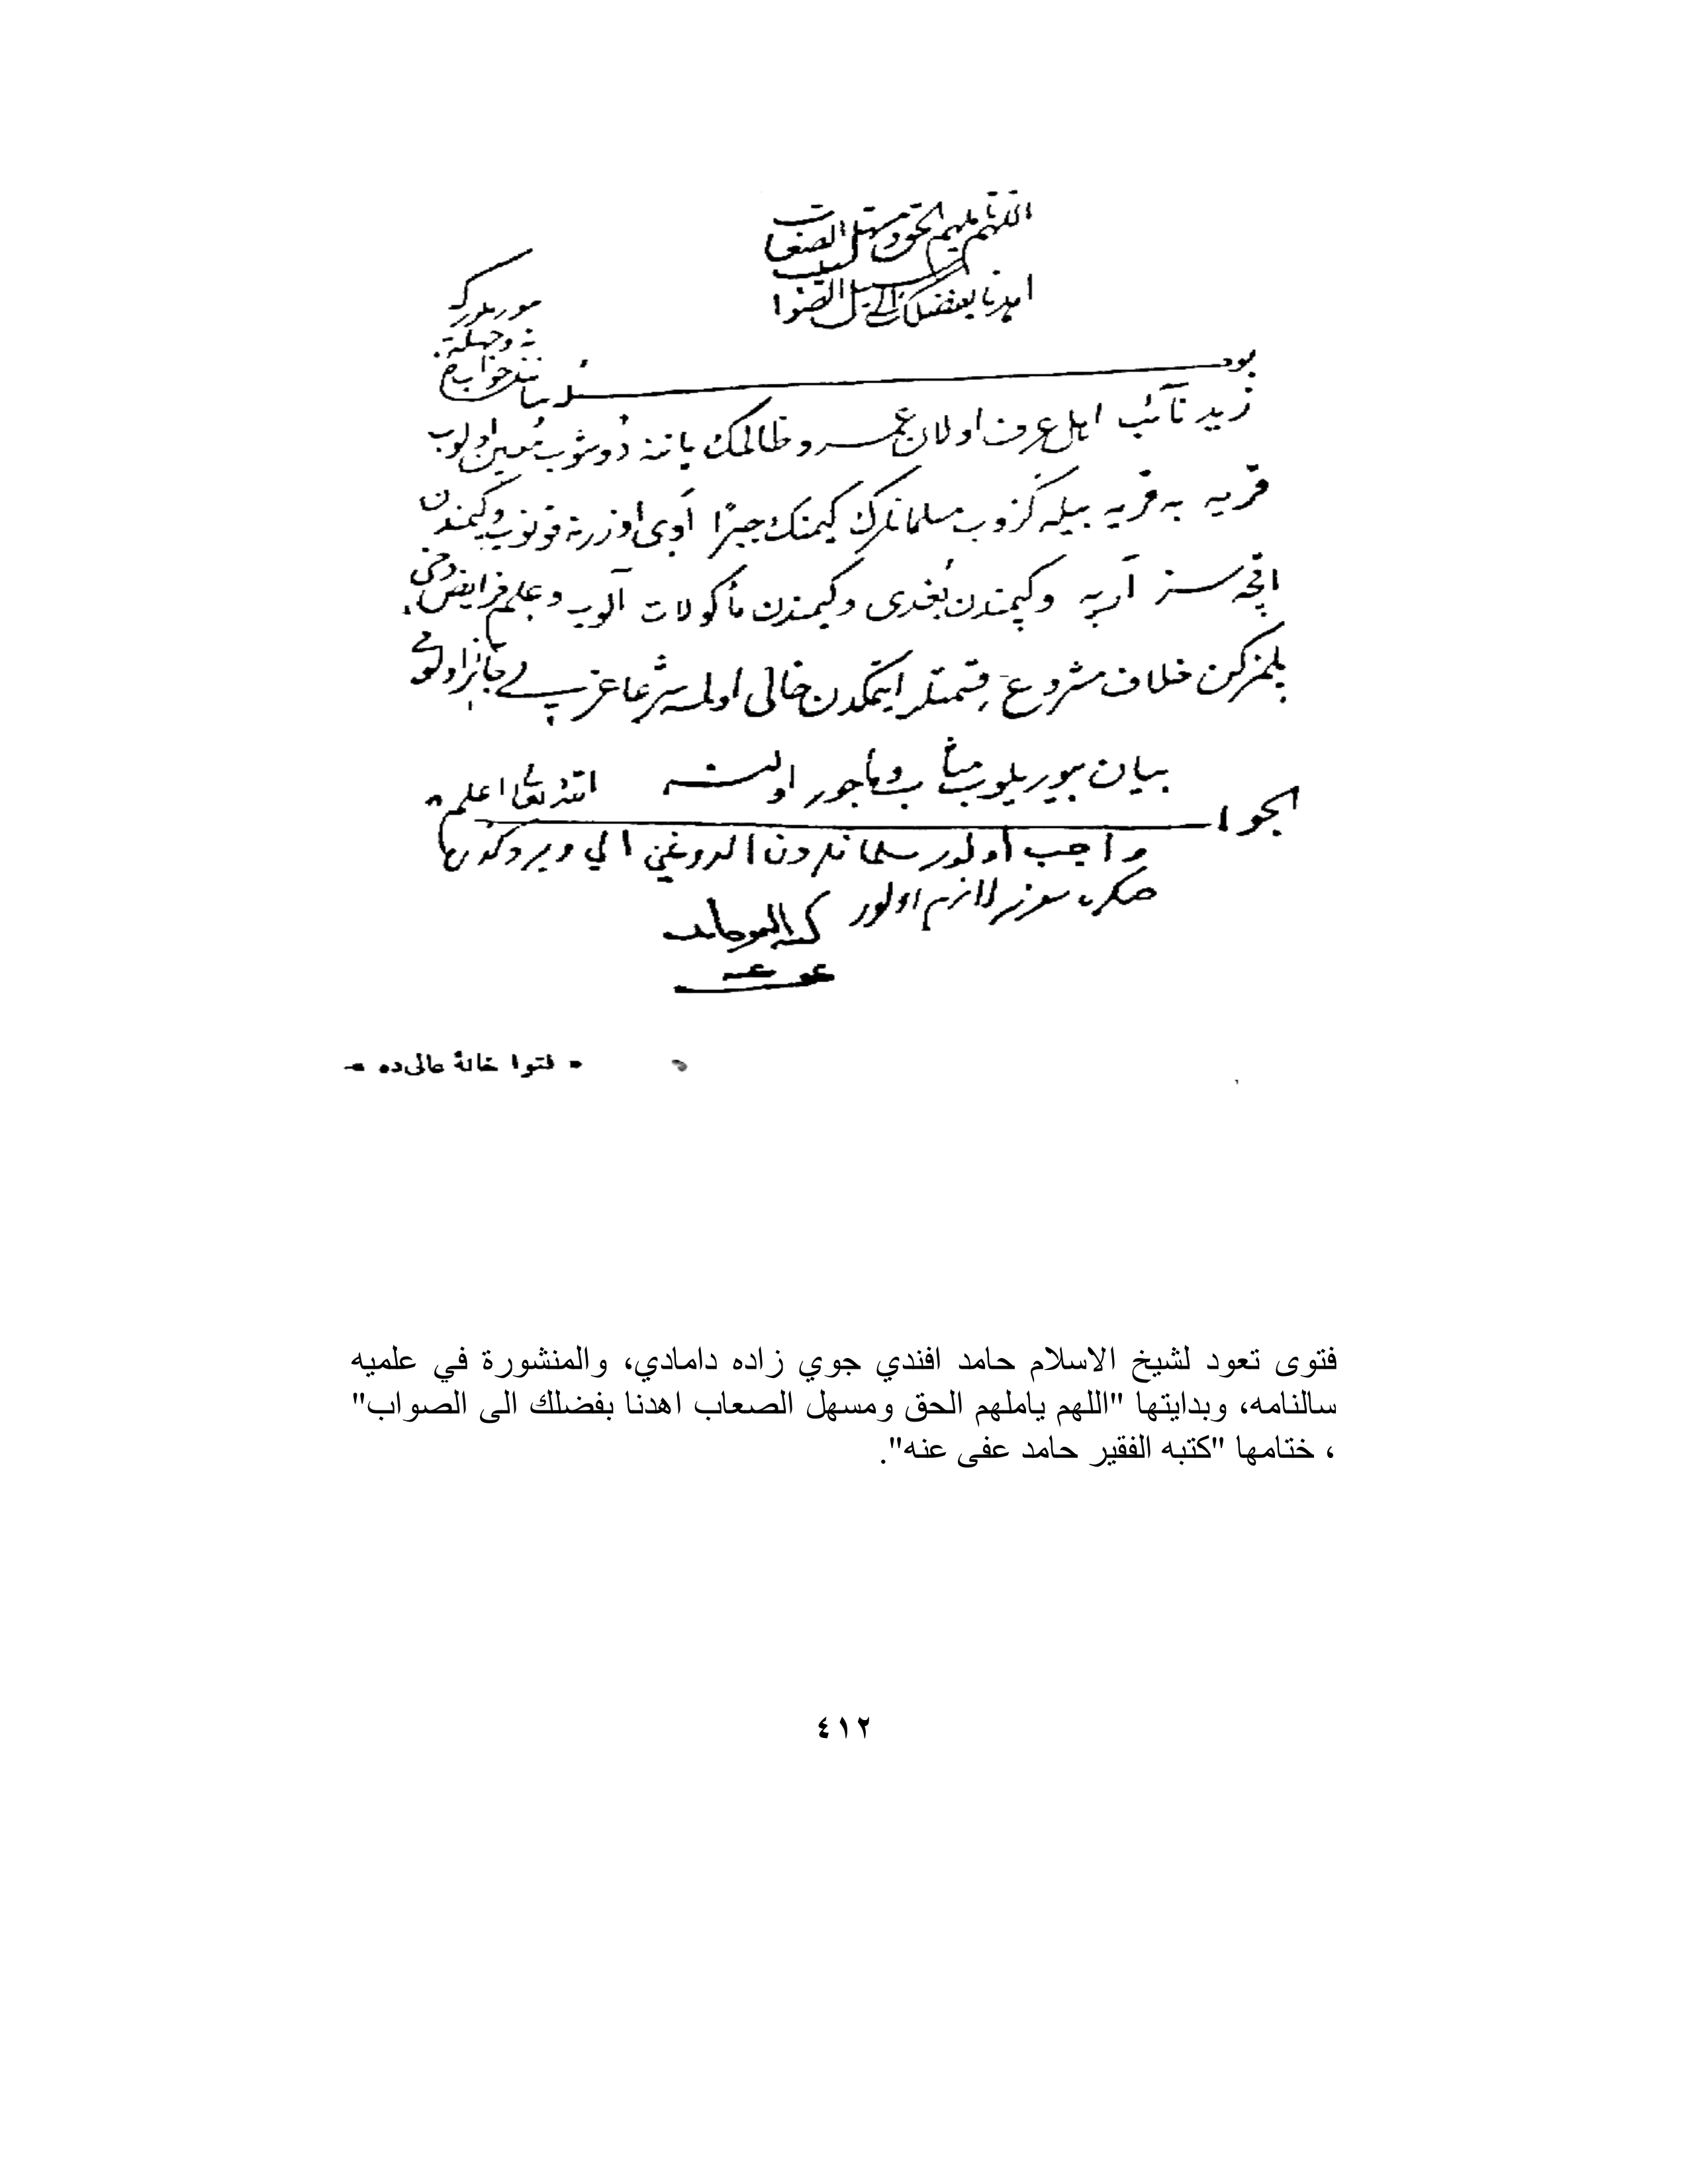 اللهم يا ملهم الحق ومسهل الصعاب
اهدنا بفضلك الى سبيل الصواب
بو
زيد نائب اهل عرف اولان عمرو ظالمك ياننه دوشوب معين اولوب
قريه به قريه بيله كزوب مسلمانلرك كيمنك جبرًا اوى اوزرينه قونوب وكيمندن
اقچه سز آرپه وكيمندن بغدى وكيمندن مأكولات آلوب وعلم فرايض دخى
بلمزكن خلاف مشروع قسمتلر ايتمكدن خالى اولمسه شرعا عزلى جائز اولورمى
بيان بيوريلوب مثاب ومأجور اولنه
الله تعالى اعلم
الجواب
واجب اولور مسلمانلردن الدوغنى الى ويردكدن
صكره لازم اولور
كتبه الفقير حامد
عفى عنه
• فتوا خانهٔ عالى ده •
فتوى تعود لشيخ الاسلام حامد افندي جوي زاده دامادي، والمنشورة في علميه
سالنامه، وبدايتها "اللهم ياملهم الحق ومسهل الصعاب اهدنا بفضلك الى الصواب"
، ختامها "كتبه الفقير حامد عفى عنه".
٤١٢